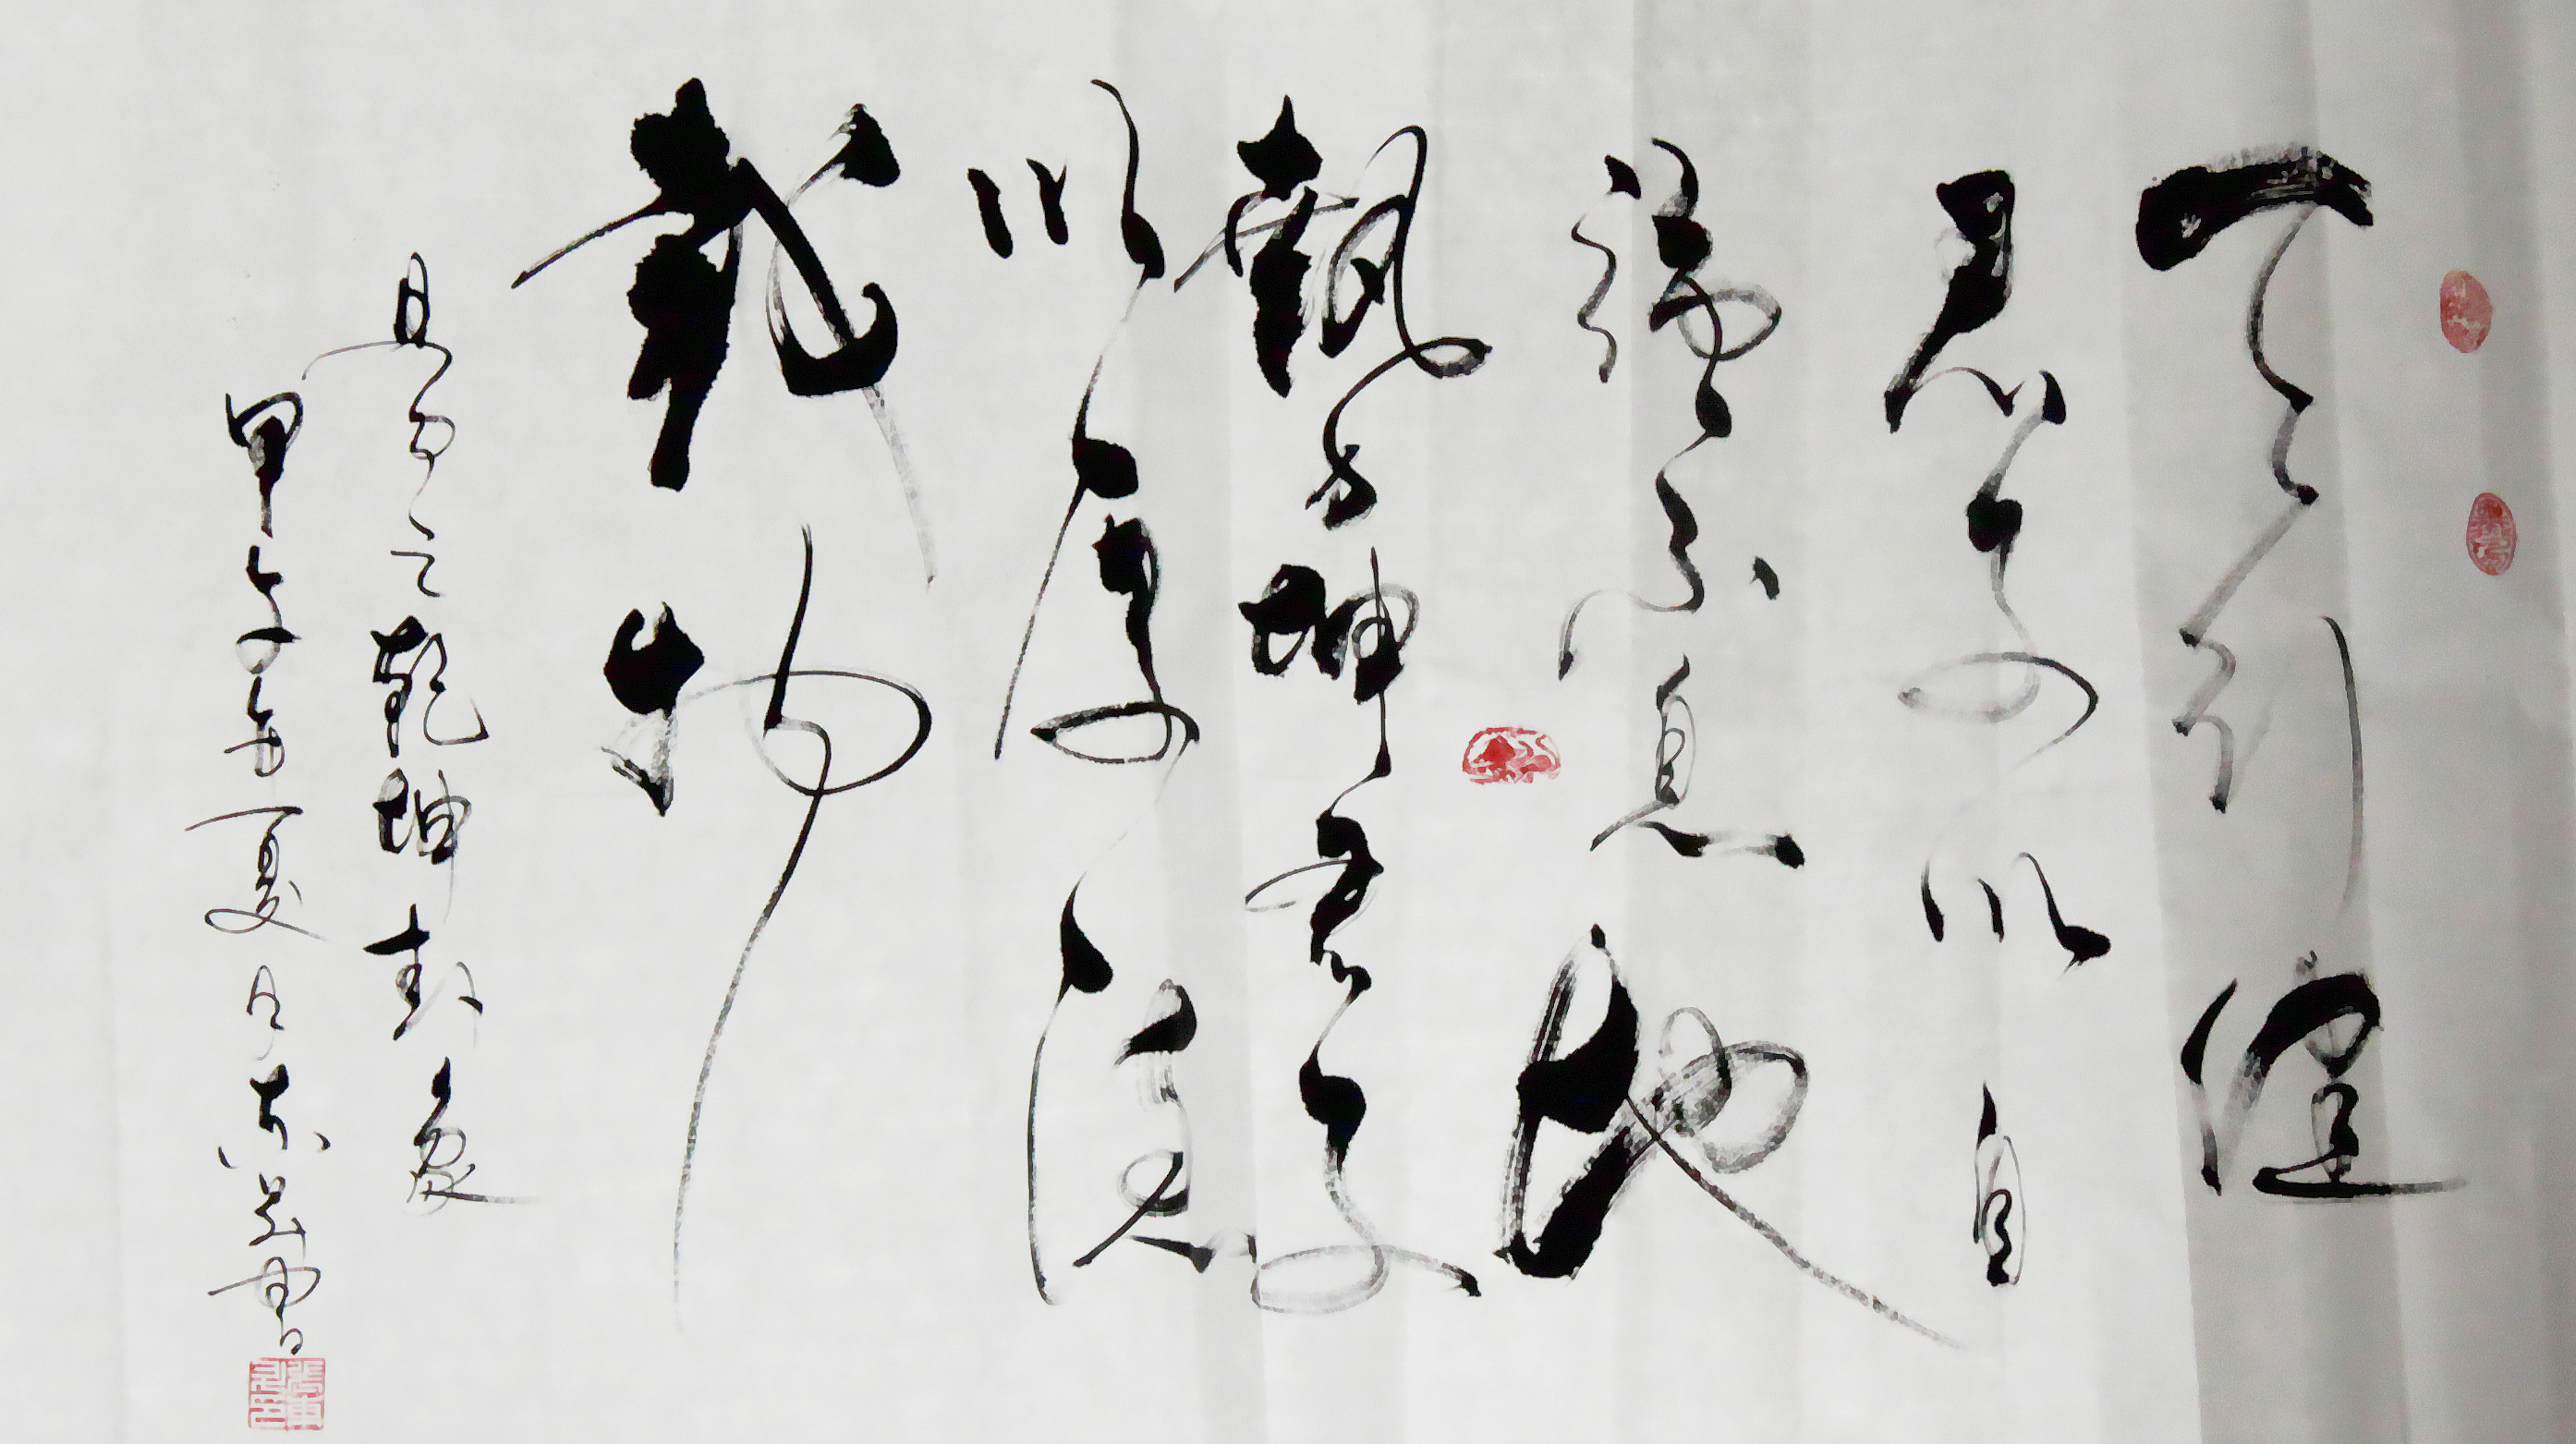 天行健
君子以自
強不息地
勢坤君子
以厚德
載物
之乾坤卦象
甲午年夏月东書